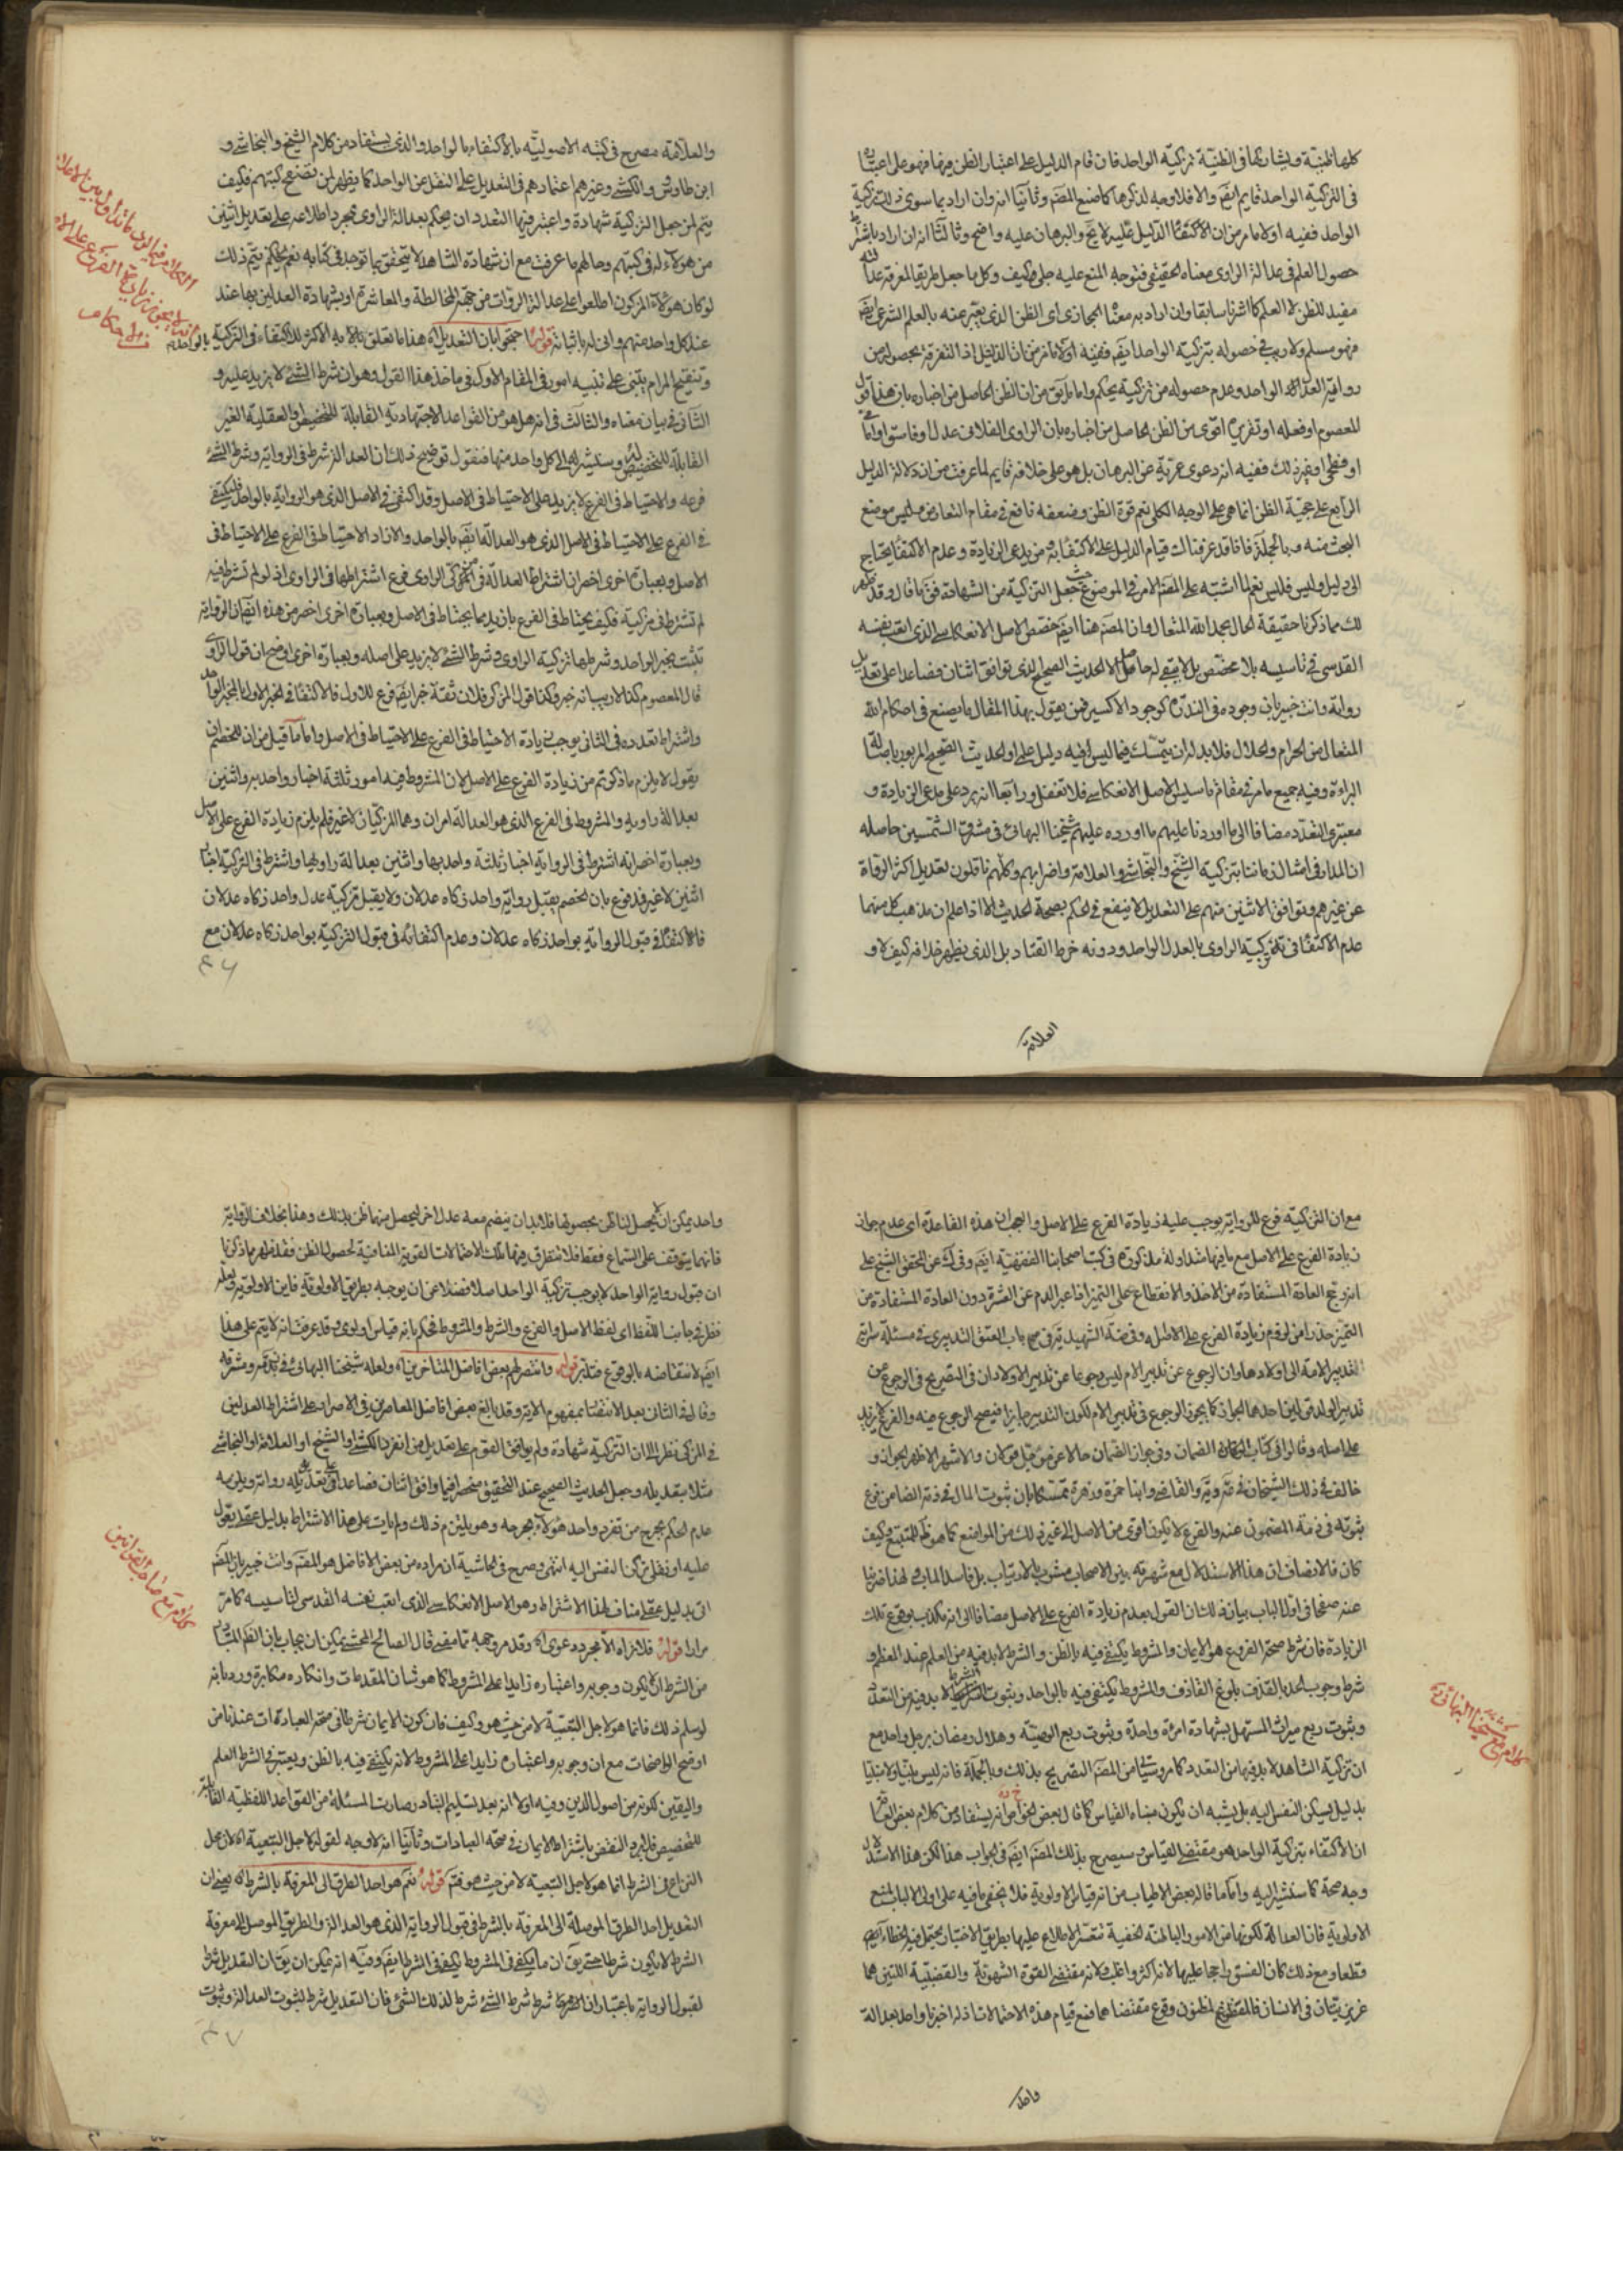 كلها ظنية ويشاركها في الظنية تزكية الواحد فان قام الدليل على اعتبار الظن فيها فهو على اعتباره
في التزكية الواحد قايم ايضا والا فلا وجه لذكرها كما صنع المصنف وثانيا انه وان اراد بما سوى ذلك تزكية
الواحد ففيه اولا ما مر من ان الاكتفاء الدليل عليه لايح والبرهان عليه واضح وثالثا انه ان اراد باشتراط
حصول العلم في عدالة الراوي معناه الحقيقي فتوجه المنع عليه جلى وكيف وكل ما جعل طريقا لمعرفة عدالته
مفيد للظن لا العلم كما اشرنا سابقا وان اراد به معناه المجازي اي الظن الذي يعبر عنه بالعلم الشرعي ايضا
فهو مسلم ولا ريب في حصوله بتزكية الواحد ايضا ففيه اولا ما مر من ان الدليل اذ التفرقة بحصوله من
رواية العدل الواحد وعدم حصوله من تزكيته تحكم واما ما يق من ان الظن الحاصل من اخباره بان هذا قول
المعصوم او فعله او تقريره اقوى من الظن الحاصل من اخباره بان الراوي الفلاني عدل او فاسق او امامي
او فطحي او غير ذلك ففيه انه دعوى عرية عن البرهان بل هو على خلافه قايم لما عرفت من ان دلالة الدليل
الرابع على حجية الظن انما هي على الوجه الكلي نعم قوة الظن وضعفه نافع في مقام التعارض وليس موضع
البحث منه وبالجملة فاذا قد عرفنا لك قيام الدليل على الاكتفاء به فمن يدعي الزيادة وعدم الاكتفاء يحتاج
الى دليل وليس فليس نعم لما اشتبه على المصنف الامر في الموضوع حيث جعل التزكية من الشهادة فق ما قال وقد ظهر
لك مما ذكرنا حقيقة الحال بحمد الله المتعال وان المصنف هنا ايضا خصص الاصل الانعكاسي الذي اتعب نفسه
القدسي في تاسيسه بلا مخصص بل لا يبقى له حاصل الا الحديث الصحيح الذي توافق اثنان فصاعدا على تعديل
رواته وانت خبير بان وجوده في الندرة كوجود الاكسير فمن يقول بهذا المقال ما يصنع في احكام الله
المتعال من الحرام والحلال فلا بد له ان يتمسك فيما ليس فيه دليل على او الحديث الصحيح المزبور باصالة
البراءة وفيه جميع ما مر في مقام تاسيس الاصل الانعكاسي فلا تغفل ورابعا انه يرد على مدعي الزيادة و
معتبري التعدد مضافا الى ما اوردنا عليهم ما اورده عليهم شيخنا البهائي في مشرق الشمسين حاصله
ان المدار في امثال زماننا بتزكية الشيخ والنجاشي والعلامة واضرابهم وكلهم ناقلون تعديل اكثر الرواة
عن غيرهم وتوافق الاثنين منهم على التعديل لا ينفع في الحكم بصحة الحديث الا اذا علم ان مذهب كل منهما
عدم الاكتفاء في تزكية الراوي بالعدل الواحد ودونه خرط القتاد بل الذي يظهر خلافه كيف لا و
العلامة
والعلامة مصرح في كتبه الاصولية بالاكتفاء بالواحد والذي يستفاد من كلام الشيخ والنجاشي و
ابن طاوس والكشي وغيرهم اعتمادهم في التعديل على النقل عن الواحد كما يظهر لمن تصفح كتبهم فكيف
يتم لمن جعل التزكية شهادة واعتبر فيها التعدد ان يحكم بعدالة الراوي بمجرد اطلاعه على تعديل اثنين
من هؤلاء له في كتبهم وحالهم ما عرفت مع ان شهادة الشاهد لا يتحقق بما توجد في كتابه نعم يحكم يتم ذلك
لو كان هؤلاء المزكون اطلعوا على عدالة الرواة من جهة المخالطة والمعاشرة او بشهادة العدلين بها عند
عند كل واحد منهم واني له باثباته قوله احتجوا بان التعديل اه هذا ما تعلق به الاكثر للاكتفاء في التزكية بالواحد
وتنقيح المرام يبتنى على تنبيه امور في المقام الاول في ماخذ هذا القول وهو ان شرط الشيء لا يزيد عليه و
الثاني في بيان معناه والثالث في انه هل هو من القواعد الاجتهادية القابلة للتخصيص او العقلية الغير
القابلة للتخصيص وسنشير الى كل واحد منها فنقول توضيح ذلك ان العدالة شرط في الرواية وشرط الشيء
فرعه والاحتياط في الفرع لا يزيد على الاحتياط في الاصل وقد اكتفي في الاصل الذي هو الرواية بالواحد فليكتف
الاصل وبعبارة اخرى اخصر ان اشتراط العدالة في مزكي الراوي فرع اشتراطها في الراوي اذ لو لم تشترط فيه
لم تشترط في مزكيه فكيف يحتاط في الفرع بازيد مما يحتاط في الاصل وبعبارة اخرى اخصر من هذه ايضا ان الرواية
تثبت بخبر الواحد وشرطها تزكية الراوي وشرط الشيء لا يزيد على اصله وبعبارة اخرى اوضح ان قول الراوي
قال المعصوم كذا لا ريب انه خبر وكذا قول المزكي فلان ثقة خبر ايضا فرع للاول فالاكتفاء في الخبر الاول بالمخبر الواحد
واشتراط تعدده في الثاني يوجب زيادة الاحتياط في الفرع على الاحتياط في الاصل واما ما قيل من ان للخصم ان
يقول لا يلزم ما ذكرتم من زيادة الفرع على الاصل لان المشروط فيه امور ثلثة اخبار واحد به واثنين
بعدالة راويه والمشروط في الفرع الذي هو العدالة امران وهما المزكيان لا غير فلم يلزم زيادة الفرع على الاصل
وبعبارة اخصر انه اشترط في الرواية اخبار ثلثة واحد بها واثنين بعدالة راويها واشترط في التزكية اخبار
اثنين لا غير فمدفوع بان الخصم يقبل رواية واحد زكاه عدلان ولا يقبل تزكية عدل واحد زكاه عدلان
فالاكتفاء في قبول الرواية بواحد زكاه عدلان وعدم اكتفائه في قبول التزكية بواحد زكاه عدلان مع
٤٦
مع ان التزكية فرع للرواية يوجب عليه زيادة الفرع على الاصل والعجب ان هذه القاعدة اي عدم جواز
زيادة الفرع على الاصل مع ما فيها متداولة مذكورة في كتب اصحابنا الفقهية ايضا وفي ك عن المحقق الشيخ على
انه رجح العادة المستفادة من الاخذ والانقطاع على التميز اذا عبر الدم عن العشرة دون العادة المستفادة من
التميز حذرا من لزوم زيادة الفرع على الاصل
تدبير الولد قيل بان احدهما الجواز كما يجوز الرجوع في تدبير الام لكون التدبير جايزا فيصح الرجوع عنه والفرع لا يزيد
على اصله وقالوا في كتاب الضمان وفي جواز الضمان حالا عن مؤجل قولان والاشهر الاظهر الجواز و
ثبوته في ذمة المضمون عنه والفرع لا يكون اقوى من الاصل الى غير ذلك من المواضع كما هو ظ للمتتبع وكيف
كان فالانصاف ان هذا الاستدلال مع شهرته بين الاصحاب مشوب بالارتياب بل فاسد المآب ولهذا ضربنا
عنه صفحا في اول الباب بيان ذلك ان القول بعدم زيادة الفرع على الاصل مضافا الى انه يكذبه وقوع تلك
الزيادة فان شرط صحة الفروع هو الايمان والمشروط يكتفي فيه بالظن والشرط لا بد فيه من العلم عند المعظم و
شرط وجوب الحد بالقذف بلوغ القاذف والمشروط يكتفي فيه بالواحد وثبوت الشرط لا بد فيه من التعدد
وثبوت ربع ميراث المستهل بشهادة امرئة واحدة وثبوت ربع الوصية وهلال رمضان برجل واحد مع
ان تزكية الشاهد لا بد فيها من التعدد كما مر وسيجئ من المصنف التصريح بذلك وبالجملة فانه ليس بينا ولا مبينا
بدليل يسكن النفس اليه بل يشبه ان يكون مبناه القياس كما قال بعض الخواص انه يستفاد من كلام بعض العامة
ان الاكتفاء بتزكية الواحد هو مقتضى القياس وسيصرح بذلك المصنف ايضا في جواب هذا لكن هذا الاستدلال
وجه صحة كما سنشير اليه واما ما قاله بعض الاطياب من انه قياس الاولوية فلا يخفى ما فيه على اولي الالباب لمنع
الاولوية فان العدالة لكونها من الامور الباطنة الخفية تتعسر الاطلاع عليها بطريق الاختبار يحتمل فيه الخطاء ايضا
قطعا ومع ذلك كان الفسق راجحا عليها لانه اكثر واغلب لانه مقتضى القوة الشهوية والغضبية اللتين هما
غريزيتان في الانسان فالمقتضي لمظنون وقوع مقتضاهما فمع قيام هذه الاحتمالات اذا اخبرنا واحد بعدالة
واحد
كلام مع شيخنا البهائي
واحد يمكن ان لا يحصل لنا ظن بحصولها فلا بد ان ينضم معه عدل اخر ليحصل منهما ظن بذلك وهذا بخلاف الرواية
فانها يتوقف على السماع فقط فلا تتطرق فيها تلك الاحتمالات القوية المنافية لحصول الظن فقد ظهر بما ذكرنا
ان قبول رواية الواحد لا يوجب تزكية الواحد اصلا فضلا عن ان يوجبه بطريق الاولوية فاين الاولوية ولعله
نظر في جانب اللفظ اي لفظ الاصل والفرع والشرط والمشروط فحكم بانه قياس اولوى وقد عرفت انه لا يتم على هذا
ايضا لانتقاضه بالوقوع فتدبر قوله وانتصر لهم بعض افاضل المتاخرين اه ولعله شيخنا البهائي
وقال في الثاني بعد الاستناد بمفهوم الاية وقد بالغ بعض افاضل المعاصرين في الاصرار على اشتراط العدلين
في المزكى نظرا الى ان التزكية شهادة ولم يوافق القوم على تعديل من انفرد الكشي او الشيخ او العلامة او النجاشي
مثلا بتعديله وجعل الحديث الصحيح عند التحقيق منحصرا فيما وافق اثنان فصاعدا على تعديل رواته ويلزمه
عدم الحكم بجرح من تفرد واحد هؤلاء بجرحه وهو يلتزم ذلك ولم يات على هذا الاشتراط بدليل عقلي يعول
عليه او نقلي تركن النفس اليه انتهى وصرح في الحاشية ان مراده من بعض الافاضل هو المصنف وانت خبير بان المصنف
اتى بدليل عقلي مناف لهذا الاشتراط وهو الاصل الانعكاسي الذي اتعب نفسه القدسي لتاسيسه كما مر
مرارا قوله فلا نراه الا مجرد دعوى اه وقد مر وجهه بما مضى قال الصالح المحشي يمكن ان يجاب بان الظ المتبادر
من الشرط ان لا يكون وجوبه واعتباره زايدا على المشروط كما هو شان المقدمات وانكاره مكابرة ورد بانه
لو سلم ذلك فانما هو لاجل التبعية لا من حيث هو وكيف فان كون الايمان شرطا في صحة العبادات عندنا من
اوضح الواضحات مع ان وجوبه واعتباره زايدا على المشروط لانه يكتفي فيه بالظن ويعتبر في الشرط العلم
واليقين لكونه من اصول الدين وفيه اولا انه بعد تسليم التبادر صارت المسئلة من القواعد اللفظية القابلة
للتخصيص فلا يرد النقض باشتراط الايمان في صحة العبادات وثانيا انه لا وجه لقوله لاجل التبعية اه لان محل
النزاع في الشرط انما هو لاجل التبعية لا من حيث هو فتم قوله نعم هو احد الطرق الى المعرفة بالشرط اه يعني ان
التعديل احد الطرق الموصلة الى المعرفة بالشرط في قبول الرواية الذي هو العدالة والطريق الموصل لمعرفة
الشرط لا يكون شرطا حتى يق ان ما يكفي في المشروط يكفي في الشرط ايضا وفيه انه يمكن ان يق ان التعديل شرط
لقبول الرواية باعتبار ان شرط شرط الشيء شرط لذلك الشيء فان التعديل شرط لثبوت العدالة وثبوت
٤٧
كلام مع صاحب القوانين